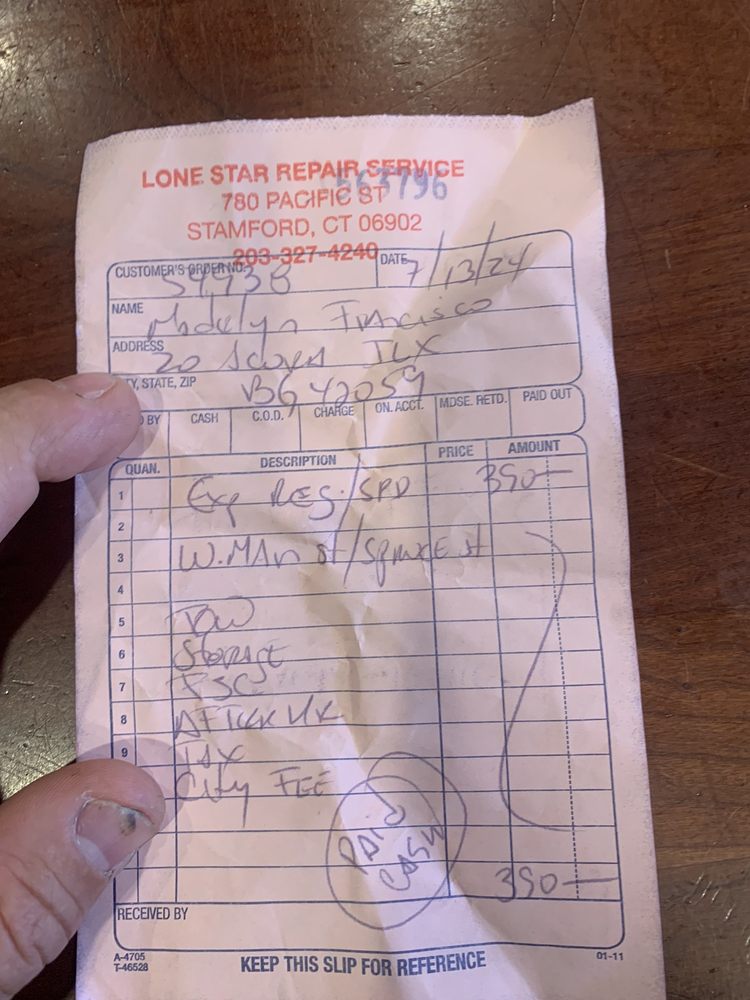 LONE STAR REPAIR SERVICE
563796
780 PACIFIC ST
STAMFORD, CT 06902
203-327-4240
CUSTOMER'S ORDER NO. DATE 7/13/24
NAME Francisco
ADDRESS 20
TY, STATE, ZIP BG42059
D BY CASH C.O.D. CHARGE ON. ACCT. MDSE. RETD. PAID OUT
QUAN. DESCRIPTION PRICE AMOUNT
1 Exp REG./SPD 390—
2
3 W. MAin St/SpRUCE St
4
5 TOW
6 StORAgE
7 FSC
8
9 TAX
City FEE
PAiD
CASH
390—
RECEIVED BY
A-4705
T-46528
KEEP THIS SLIP FOR REFERENCE
01-11